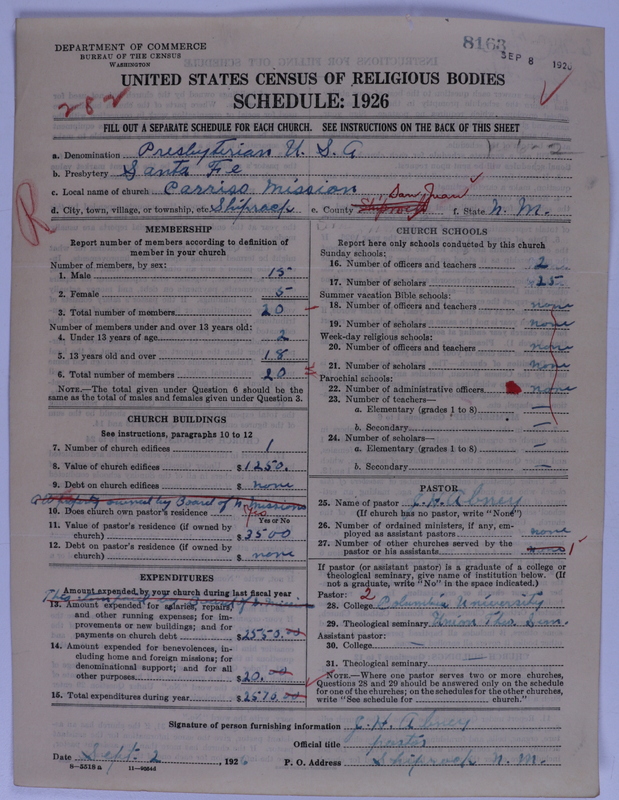 DEPARTMENT OF COMMERCE
BUREAU OF THE CENSUS
WASHINGTON
8163
SEP 8 1926
UNITED STATES CENSUS OF RELIGIOUS BODIES
SCHEDULE: 1926
282
FILL OUT A SEPARATE SCHEDULE FOR EACH CHURCH. SEE INSTRUCTIONS ON THE BACK OF THIS SHEET
a. Denomination Presbyterian U. S. A
b. Presbytery Santa Fe
c. Local name of church Carriso Mission
R
d. City, town, village, or township, etc. Shiprock e. County Shiprock San Juan f. State N. M.
MEMBERSHIP
Report number of members according to definition of
member in your church
Number of members, by sex:
1. Male 15
2. Female 5
3. Total number of members 20
Number of members under and over 13 years old:
4. Under 13 years of age 2
5. 13 years old and over 18
6. Total number of members 20
NOTE.—The total given under Question 6 should be the
same as the total of males and females given under Question 3.
CHURCH BUILDINGS
See instructions, paragraphs 10 to 12
7. Number of church edifices 1
8. Value of church edifices $1250.
9. Debt on church edifices $ none
owned by Board of N. Missions
10. Does church own pastor's residence
Yes or No
11. Value of pastor's residence (if owned by
church) $3500
12. Debt on pastor's residence (if owned by
church) $ none
EXPENDITURES
Amount expended by your church during last fiscal year
13. Amount expended for salaries, repairs,
and other running expenses; for im-
provements or new buildings; and for
payments on church debt $2550.00
14. Amount expended for benevolences, in-
cluding home and foreign missions; for
denominational support; and for all
other purposes $20.00
15. Total expenditures during year $2570.00
CHURCH SCHOOLS
Report here only schools conducted by this church
Sunday schools:
16. Number of officers and teachers 2
17. Number of scholars 25
Summer vacation Bible schools:
18. Number of officers and teachers none
19. Number of scholars none
Week-day religious schools:
20. Number of officers and teachers none
21. Number of scholars none
Parochial schools:
22. Number of administrative officers none
23. Number of teachers—
a. Elementary (grades 1 to 8) —
b. Secondary —
24. Number of scholars—
a. Elementary (grades 1 to 8) —
b. Secondary —
PASTOR
25. Name of pastor J. H. Abney
(If church has no pastor, write "None")
26. Number of ordained ministers, if any, em-
ployed as assistant pastors none
27. Number of other churches served by the
pastor or his assistants none 1
If pastor (or assistant pastor) is a graduate of a college or
theological seminary, give name of institution below. (If
not a graduate, write "No" in the space indicated.)
Pastor: 2
28. College Columbia University
29. Theological seminary Union Theo. Sem.
Assistant pastor:
30. College —
31. Theological seminary —
NOTE.—Where one pastor serves two or more churches,
Questions 28 and 29 should be answered only on the schedule
for one of the churches; on the schedules for the other churches,
write "See schedule for church."
Signature of person furnishing information J. H. Abney
Official title pastor
Date Sept. 2, 1926 P. O. Address Shiprock N. M.
8—5518 a